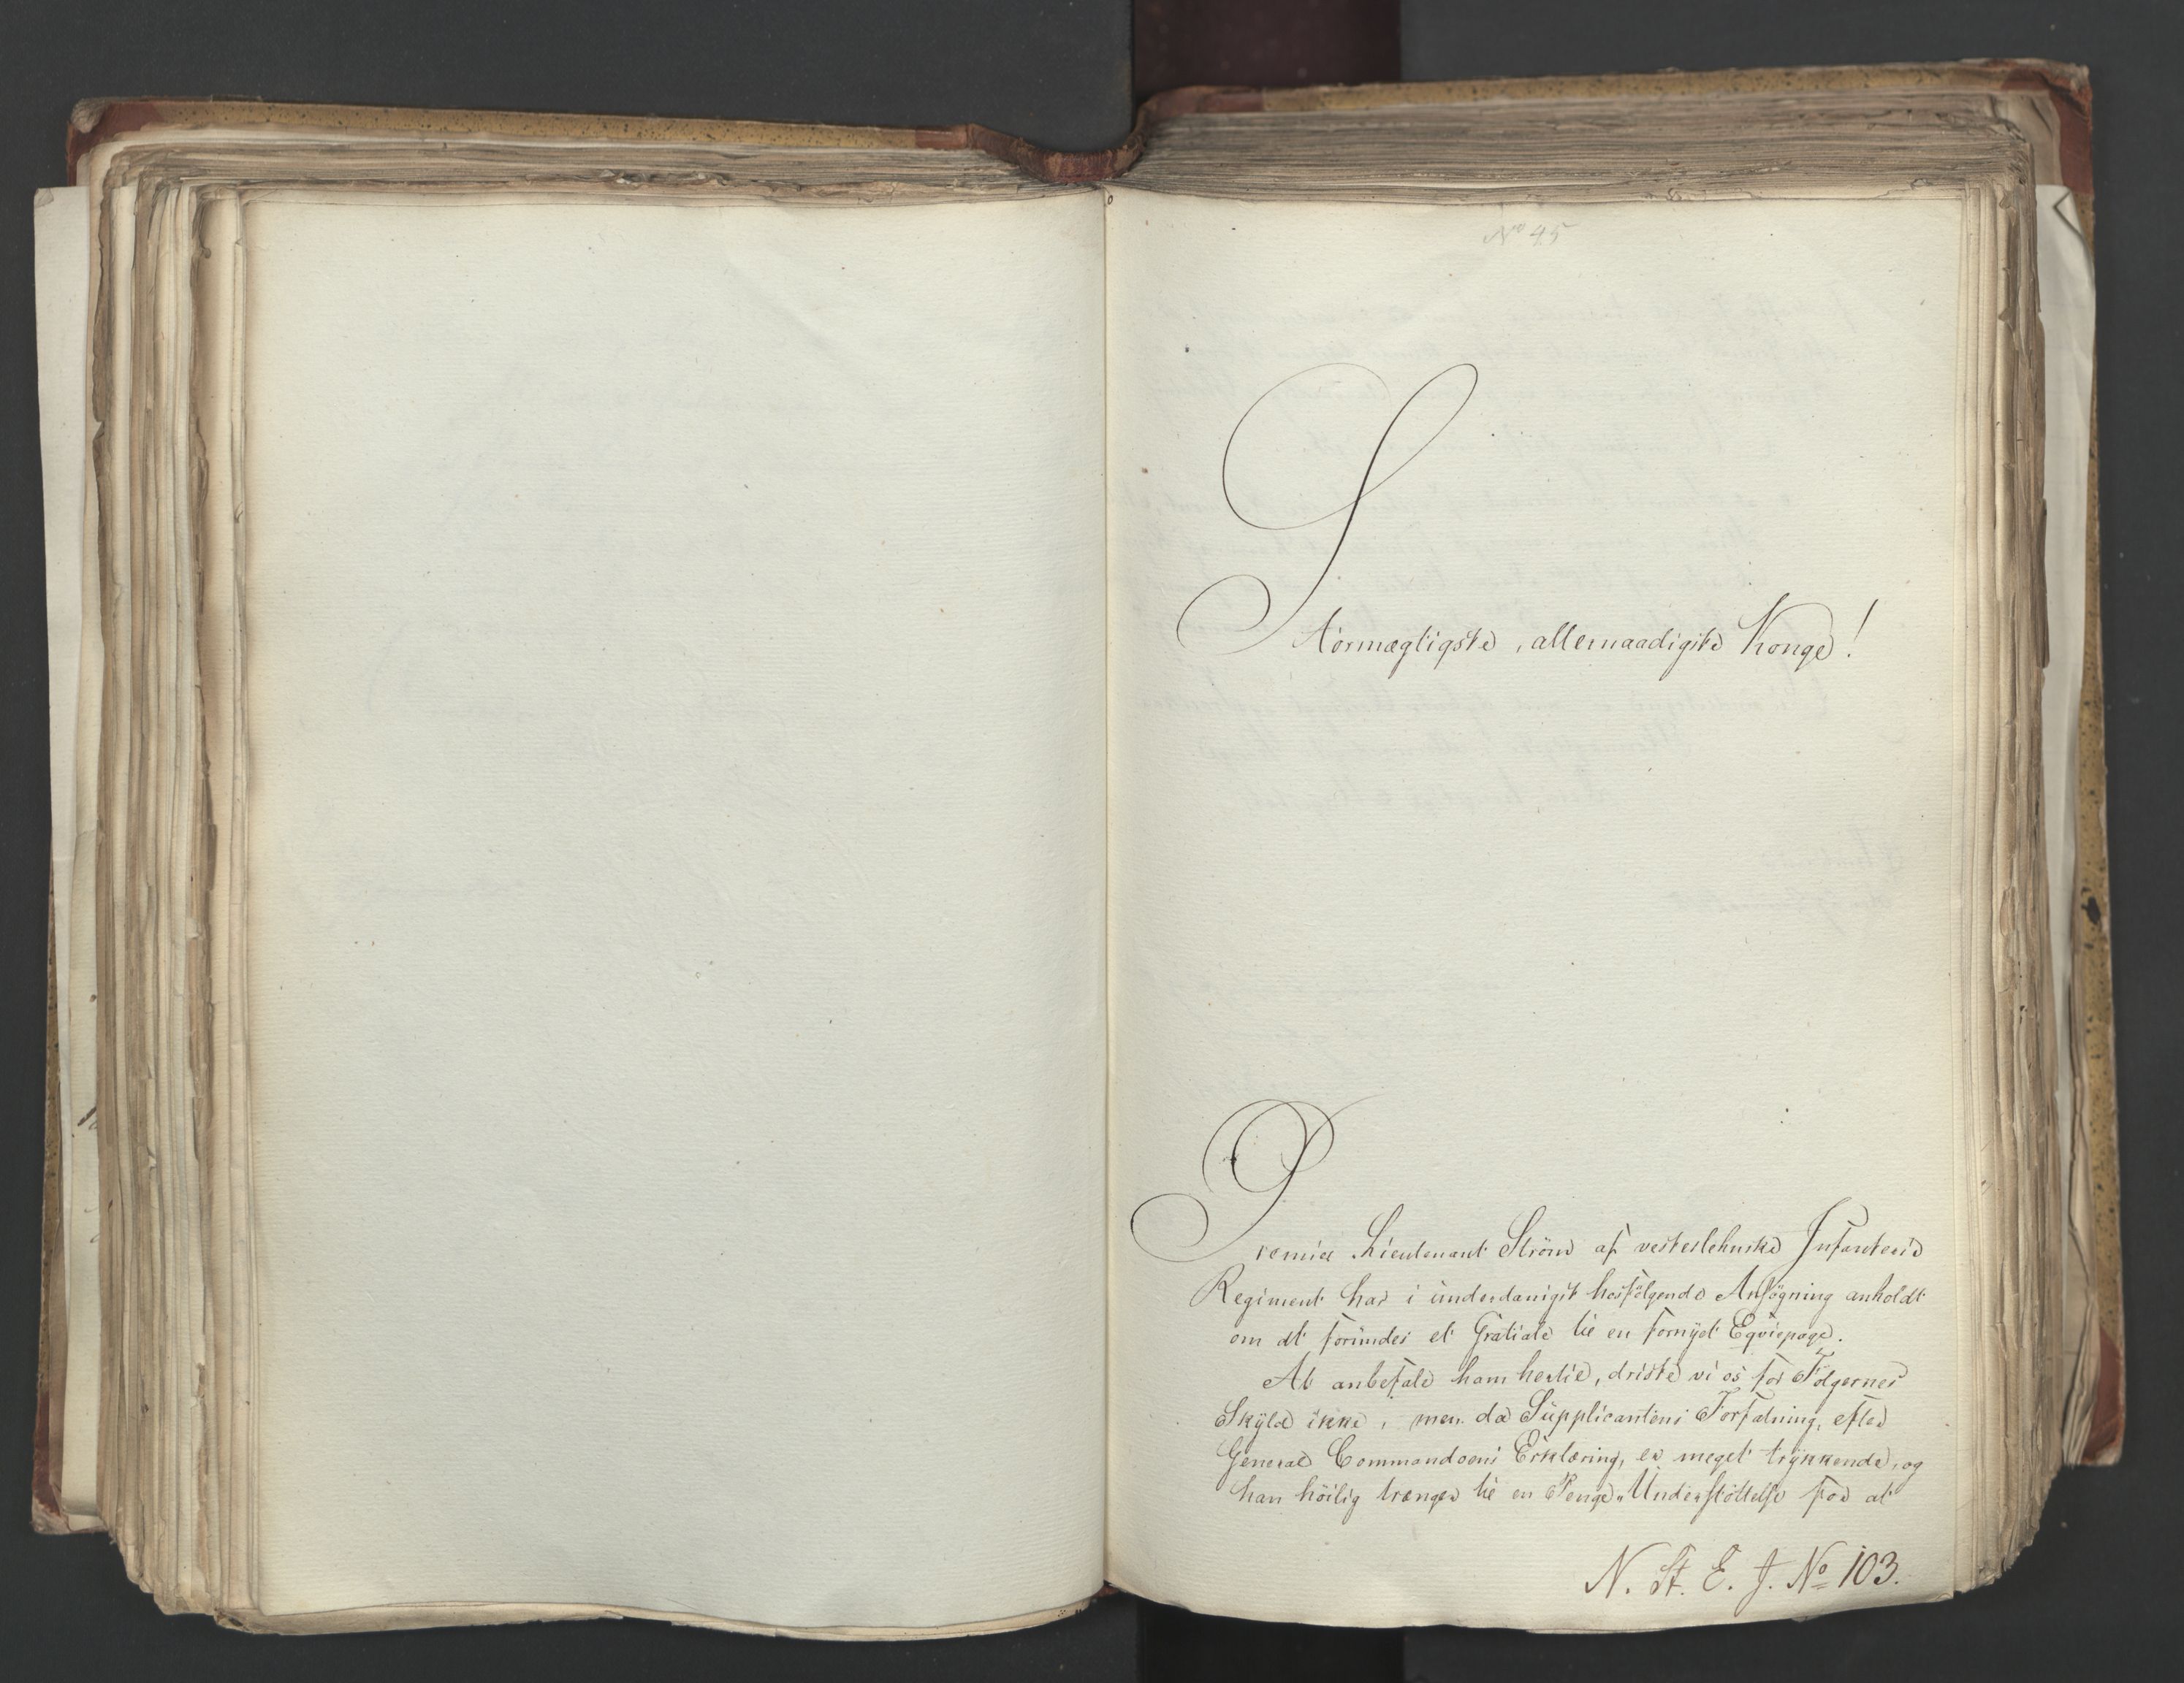 No 45
Stormægtigste, allernaadigste Konge!
Premier Lieutenant Ström af vesterlehnske Infanterie
Regiment har i underdanigst hosfölgende Ansögning anholdt
om at forundes et Gratiale til en fornyet Eqvipage.
At anbefale ham hertil, driste vi os for Fölgernes
Skyld ikke, men da Supplicantens Forfatning, efter
General Commandoens Erklæring, er meget trykkende, og
han höilig trænger til en Penge-Understöttelse for at
N. St. E. J. No 103.